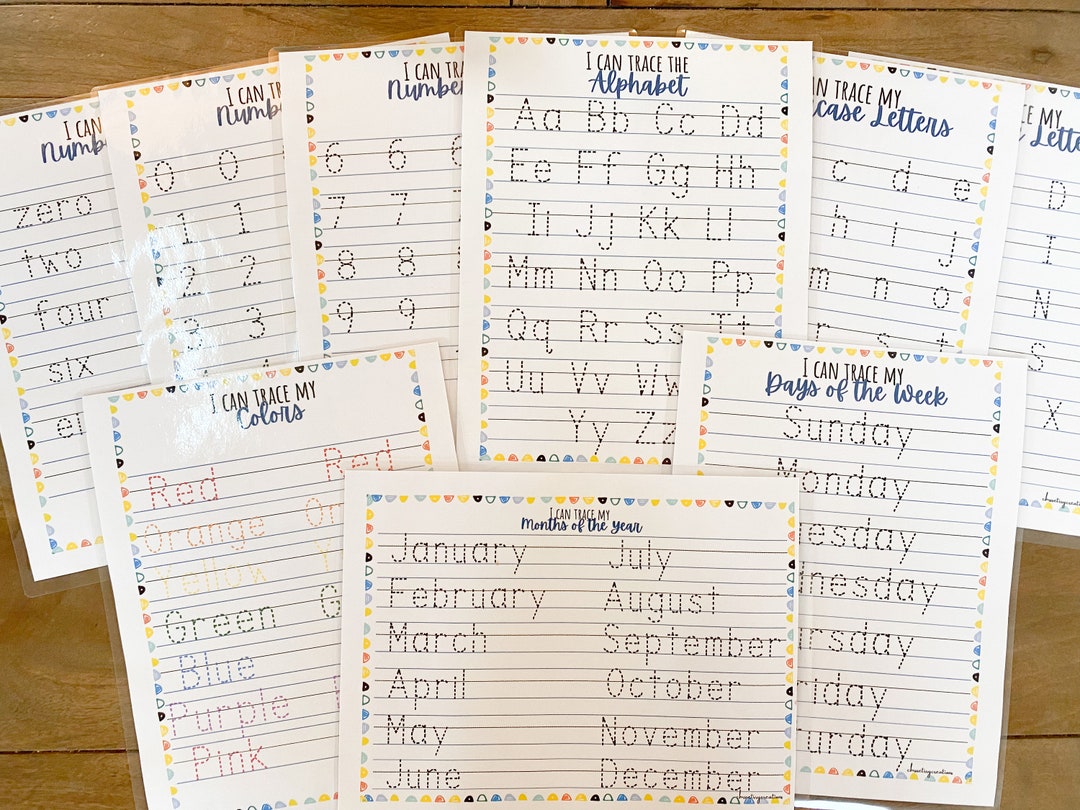 I CAN
zero
two
four
six
I CAN
0 0
1 1
2 2
3 3
I CAN
6 6
7 7
8 8
9 9
I CAN TRACE THE
Alphabet
Aa Bb Cc Dd
Ee Ff Gg Hh
Ii Jj Kk Ll
Mm Nn Oo Pp
Qq Rr Ss Tt
Uu Vv Ww
Yy Zz
CAN TRACE MY
Letters
c d e
h i j
m n o
r s t
MY
D
I
N
S
X
I CAN TRACE MY
Colors
Red Red
Orange
Yellow Y
Green G
Blue
Purple
Pink
I CAN TRACE MY
Months of the Year
January July
February August
March September
April October
May November
June December
I CAN TRACE MY
Days of the Week
Sunday
Monday
esday
nesday
rsday
riday
urday